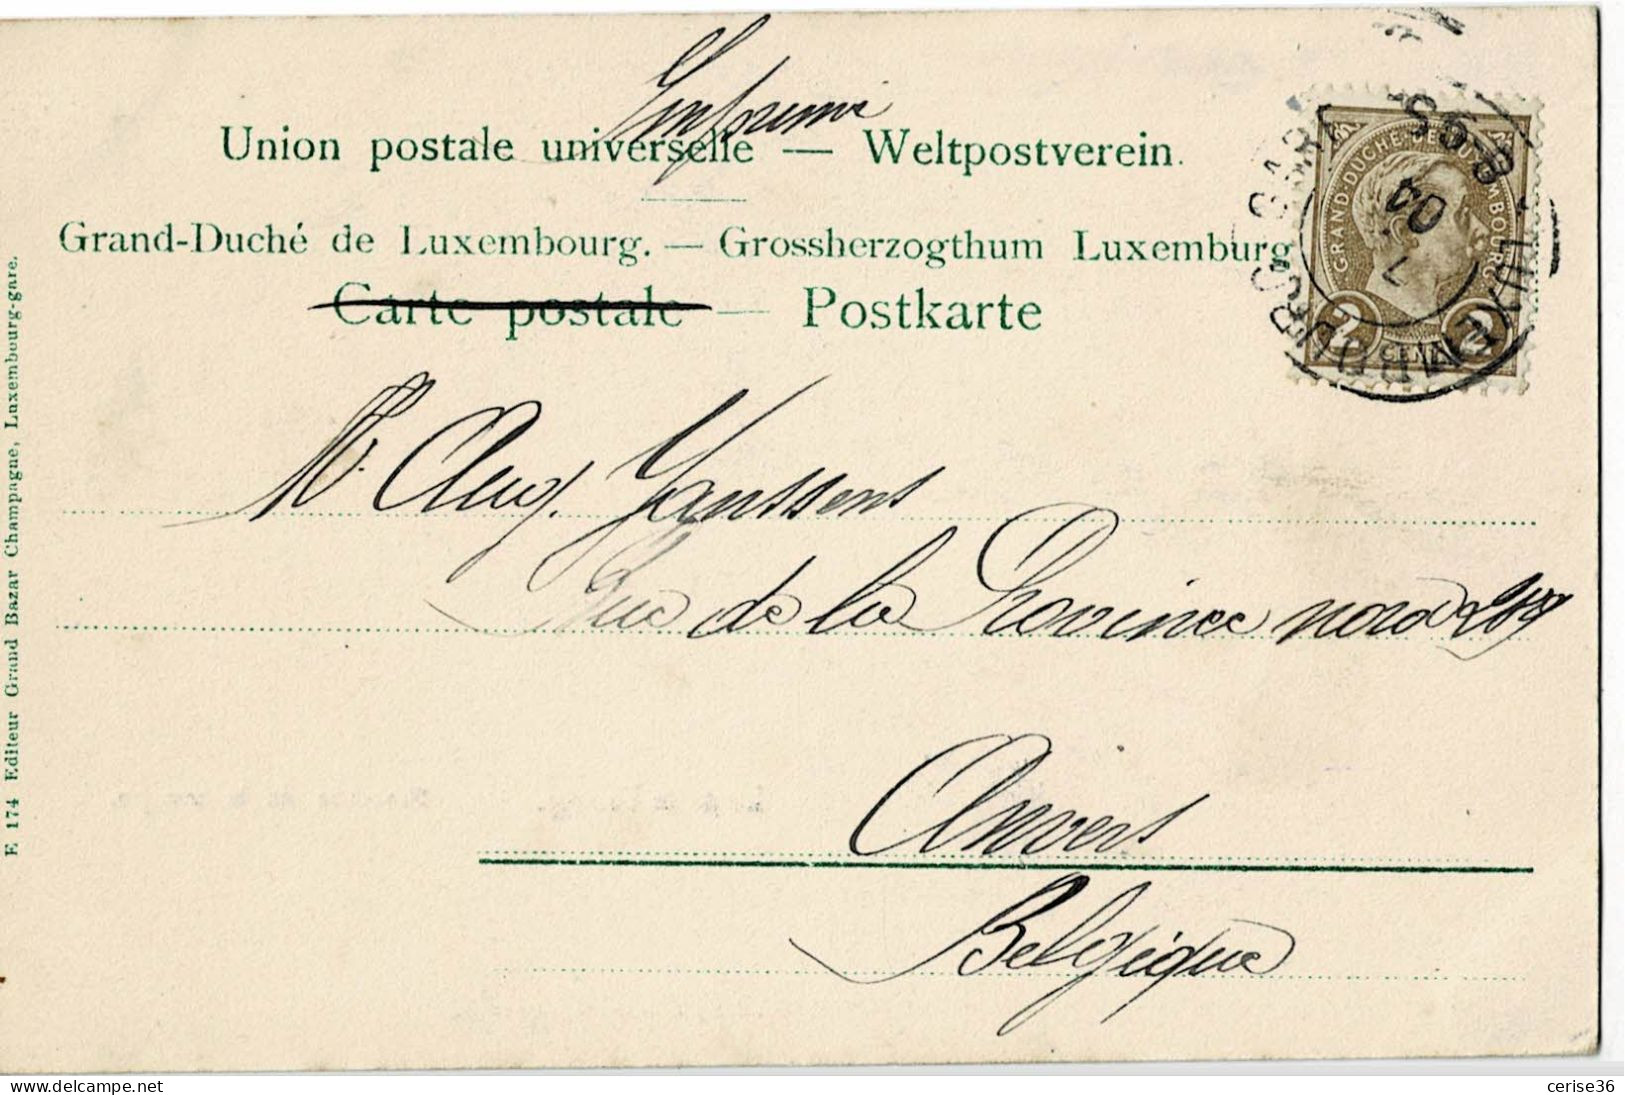 Imprimé
Union postale universelle — Weltpostverein.
Grand-Duché de Luxembourg. — Grossherzogthum Luxemburg
Carte postale — Postkarte
GRAND-DUCHÉ DE LUXEMBOURG
2 CENTS 2
LUXEMBOURG GARE
8-9S
04
M. Aug. Janssens
Rue de la Province nord 289
Anvers
Belgique
E. 174 Editeur Grand Bazar Champagne, Luxembourg-gare.
delcampe.net
cerise36